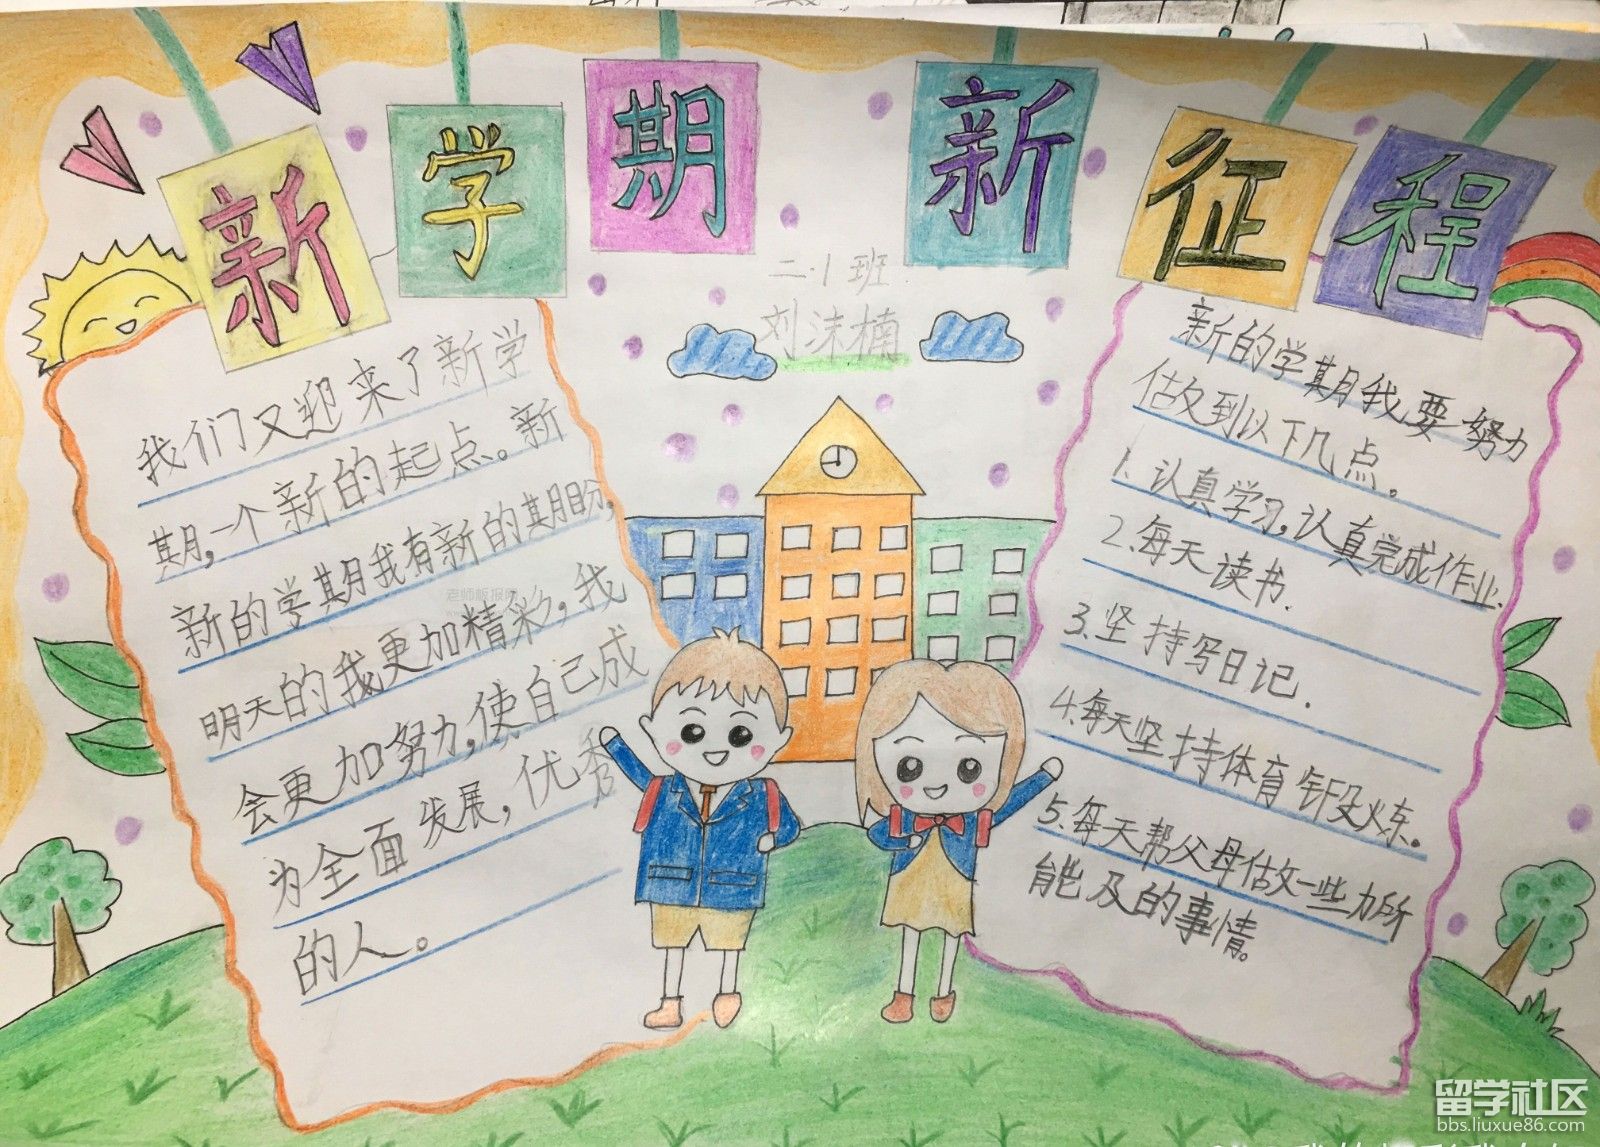 新学期 新征程
二.1班
刘沫楠
我们又迎来了新学
期,一个新的起点。新
新的学期我有新的期盼,
明天的我更加精彩,我
会更加努力,使自己成
为全面发展,优秀
的人。
新的学期我要努力
做到以下几点。
1.认真学习,认真完成作业.
2.每天读书.
3.坚持写日记.
4.每天坚持体育锻炼。
5.每天帮父母做一些力所
能及的事情。
老师板报网
留学社区
bbs.liuxue86.com